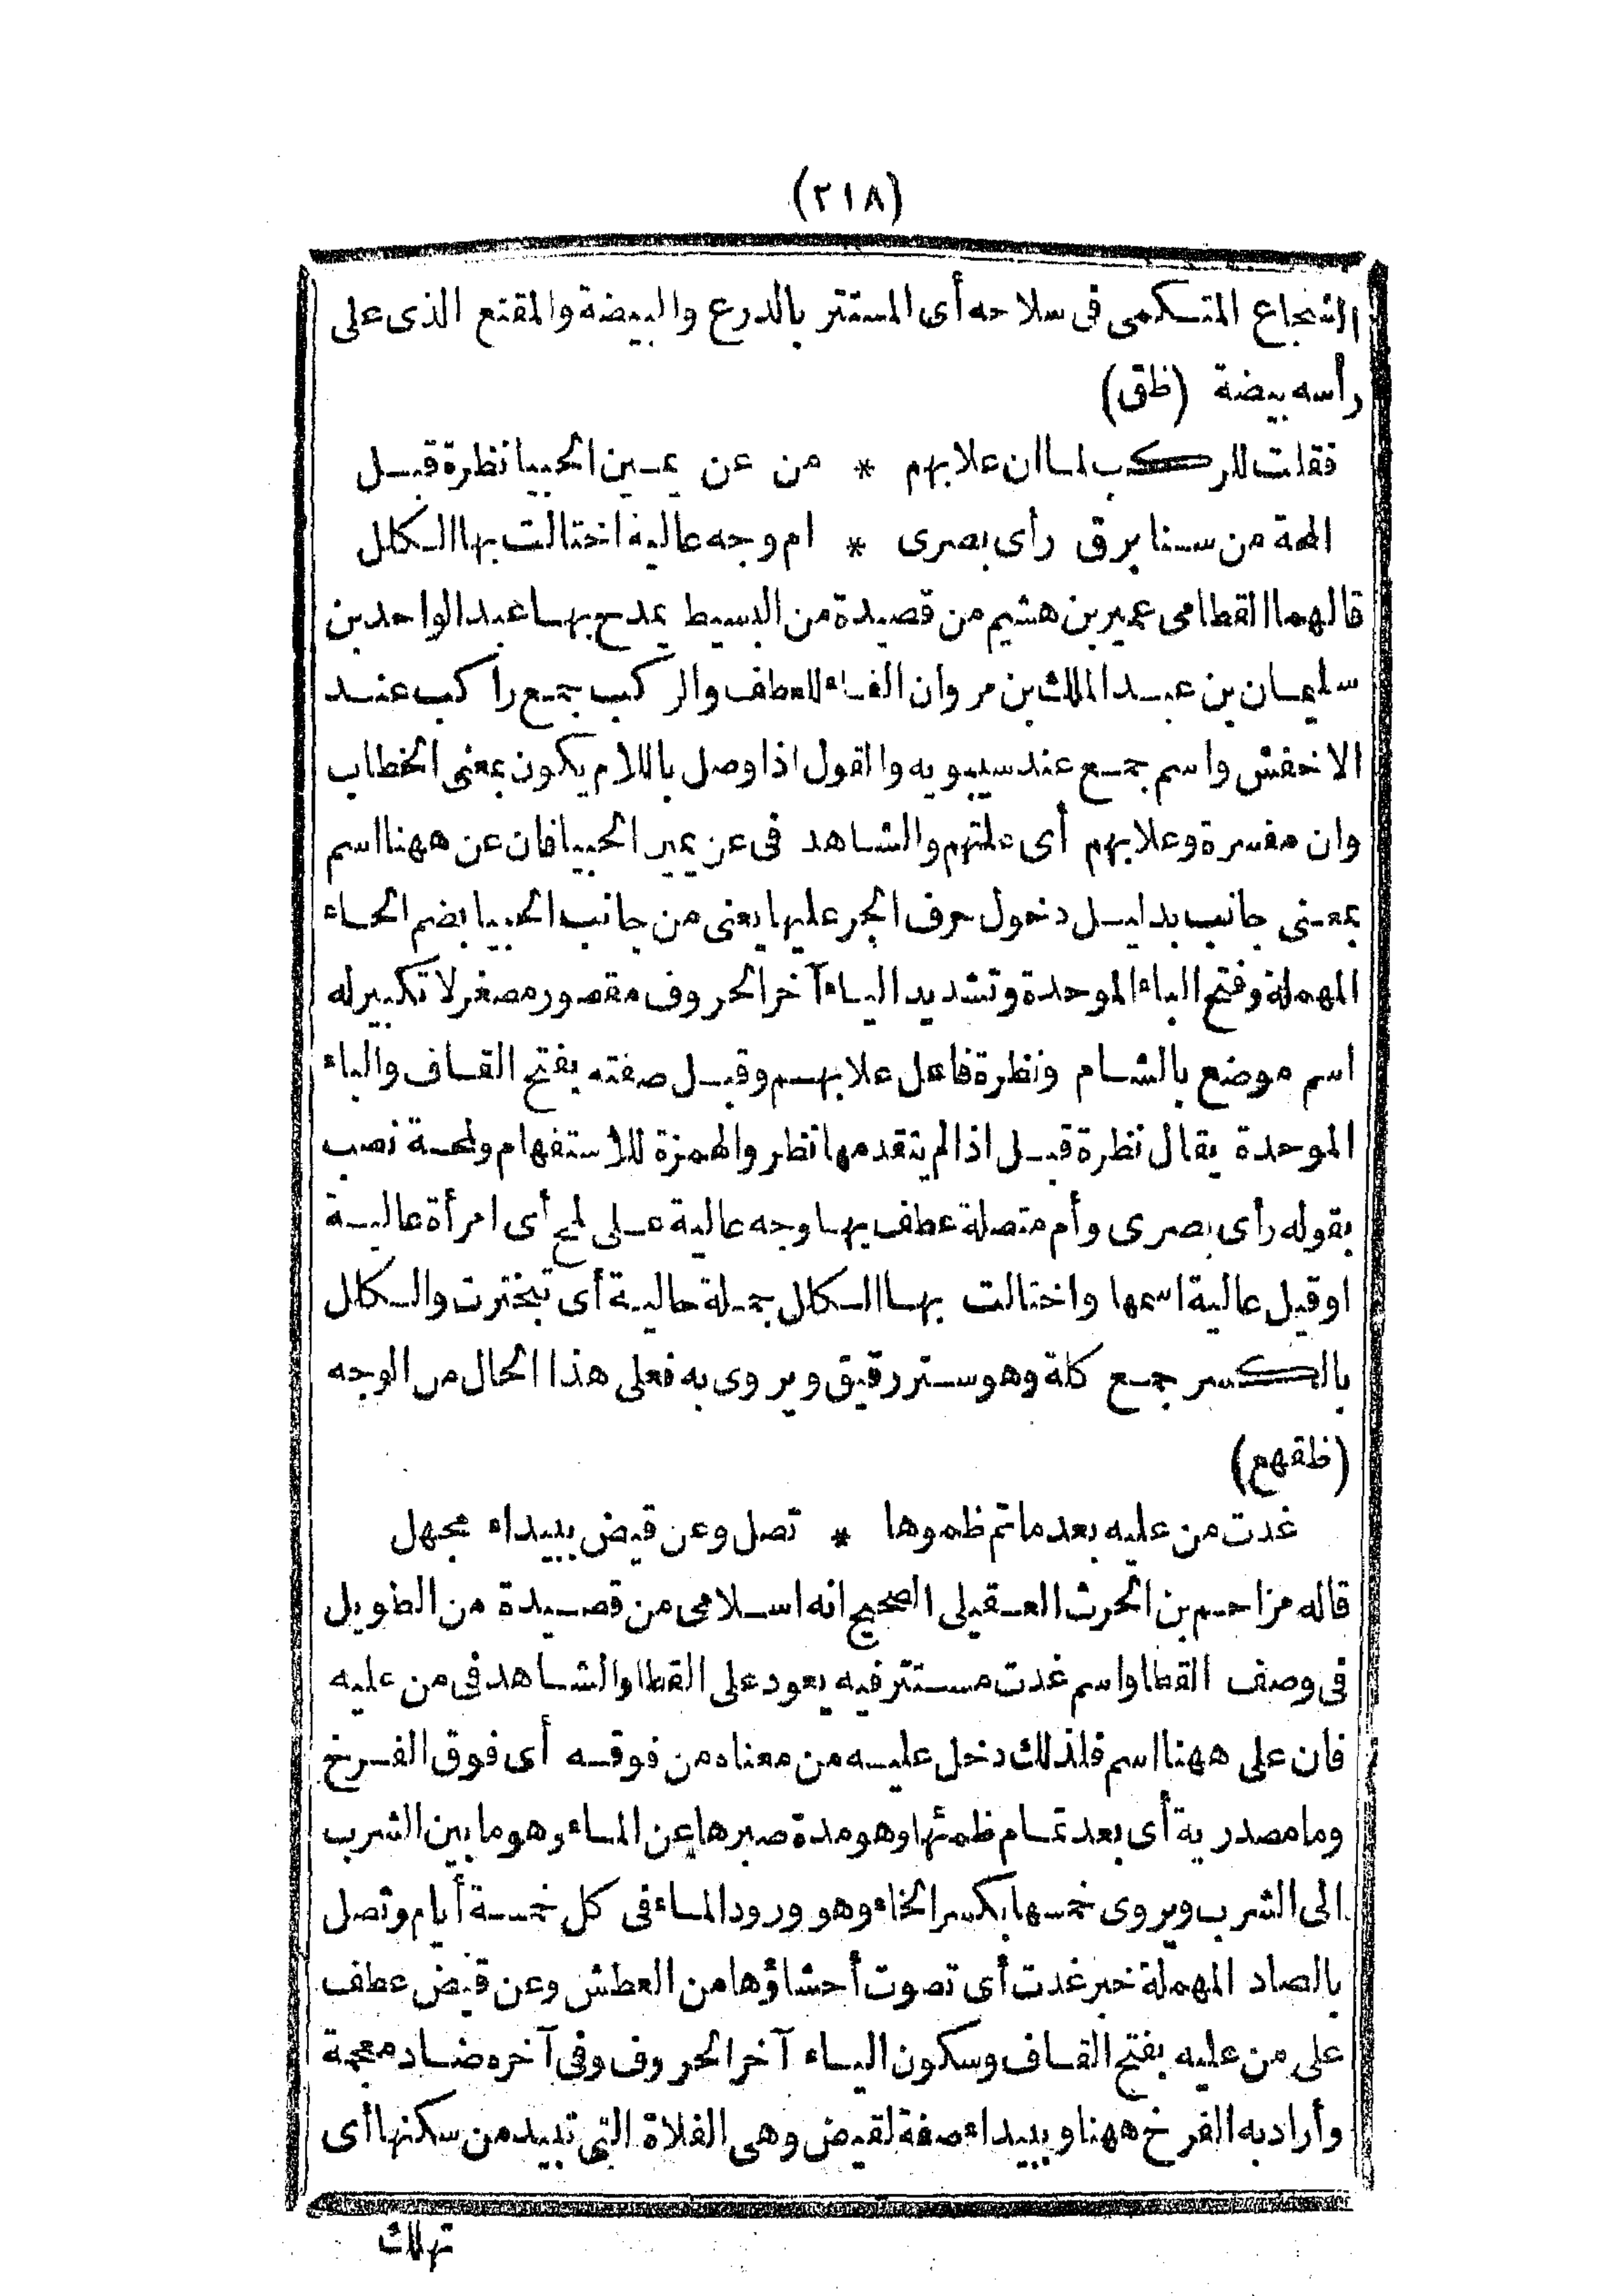 (٢١٨)
الشجاع المتكمى فى سلاحه أى المستتر بالدرع والبيضة والمقنع الذى على
رأسه بيضة (ظق)
فقلت للركب لما ان علا بهم * من عن يمين الحبيا نظرة قبل
المحة من سنا برق رأى بصرى * ام وجه عالية اختالت بها الكلل
قالهما القطامى عمير بن هشيم من قصيدة من البسيط يمدح بها عبد الواحد بن
سليمان بن عبد الملك بن مروان الفاء للعطف والركب جمع راكب عند
الاخفش واسم جمع عند سيبويه والقول اذا وصل باللام يكون بمعنى الخطاب
وان مفسرة وعلا بهم أى علتهم والشاهد فى عن يمين الحبيا فان عن ههنا اسم
بمعنى جانب بدليل دخول حرف الجر عليها يعنى من جانب الحبيا بضم الحاء
المهملة وفتح الباء الموحدة وتشديد الياء آخر الحروف مقصور مصغر لا تكبير له
اسم موضع بالشام ونظرة فاعل علا بهم وقبل صفته بفتح القاف والباء
الموحدة يقال نظرة قبل اذا لم يتقدمها نظر والهمزة للاستفهام ولمحة نصب
بقوله رأى بصرى وأم متصلة عطف بها وجه عالية على لمح أى امرأة عالية
اوقيل عالية اسمها واختالت بها الكلل جملة حالية أى تبخترت والكلل
بالكسر جمع كلة وهو ستر رقيق ويروى به فعلى هذا الحال من الوجه
(ظقهم)
غدت من عليه بعد ما تم ظموها * تصل وعن قيض ببيداء مجهل
قاله مزاحم بن الحرث العقيلى الصحيح انه اسلامى من قصيدة من الطويل
فى وصف القطا واسم غدت مستتر فيه يعود على القطا والشاهد فى من عليه
فان على ههنا اسم فلذلك دخل عليه من معناه من فوقه أى فوق الفرخ
وما مصدرية أى بعد تمام ظمئها وهو مدة صبرها عن الماء وهو ما بين الشرب
الى الشرب ويروى خمسها بكسر الخاء وهو ورود الماء فى كل خمسة أيام وتصل
بالصاد المهملة خبر غدت أى تصوت أحشاؤها من العطش وعن قيض عطف
على من عليه بفتح القاف وسكون الياء آخر الحروف وفى آخره ضاد معجمة
وأراد به الفرخ ههنا وببيداء صفة لقيض وهى الفلاة التى تبيد من سكنها أى
تهلك